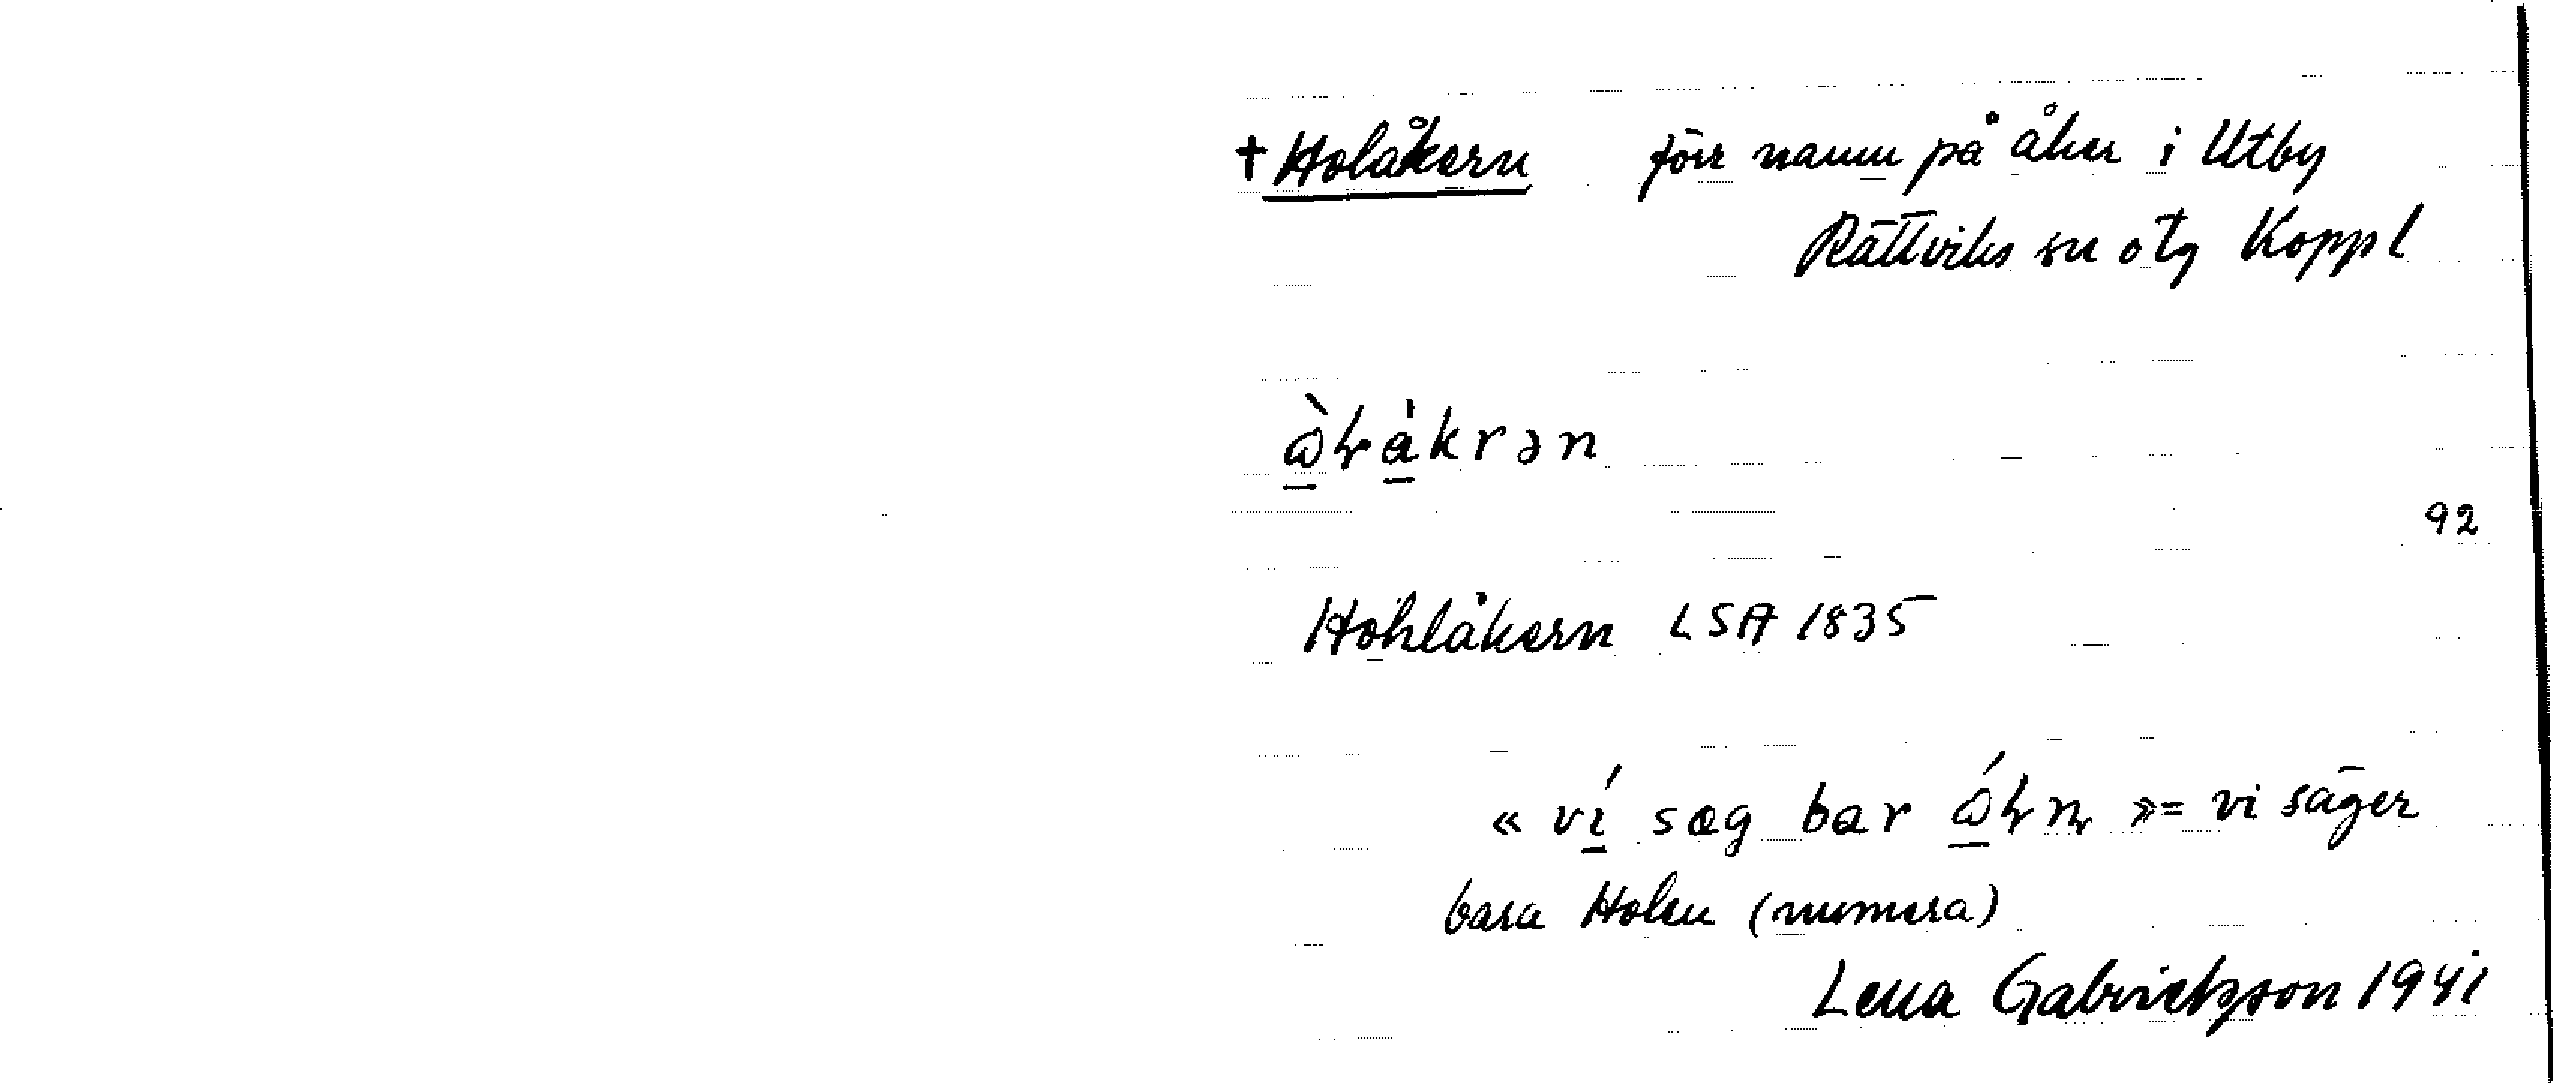 † Holåkern förr namn på åker i Utby
Rättviks sn otg Koppl
92
Hohlåkern LSA 1835
bar = vi säger
bara Holen (numera)
Lena Gabrielsson 1941